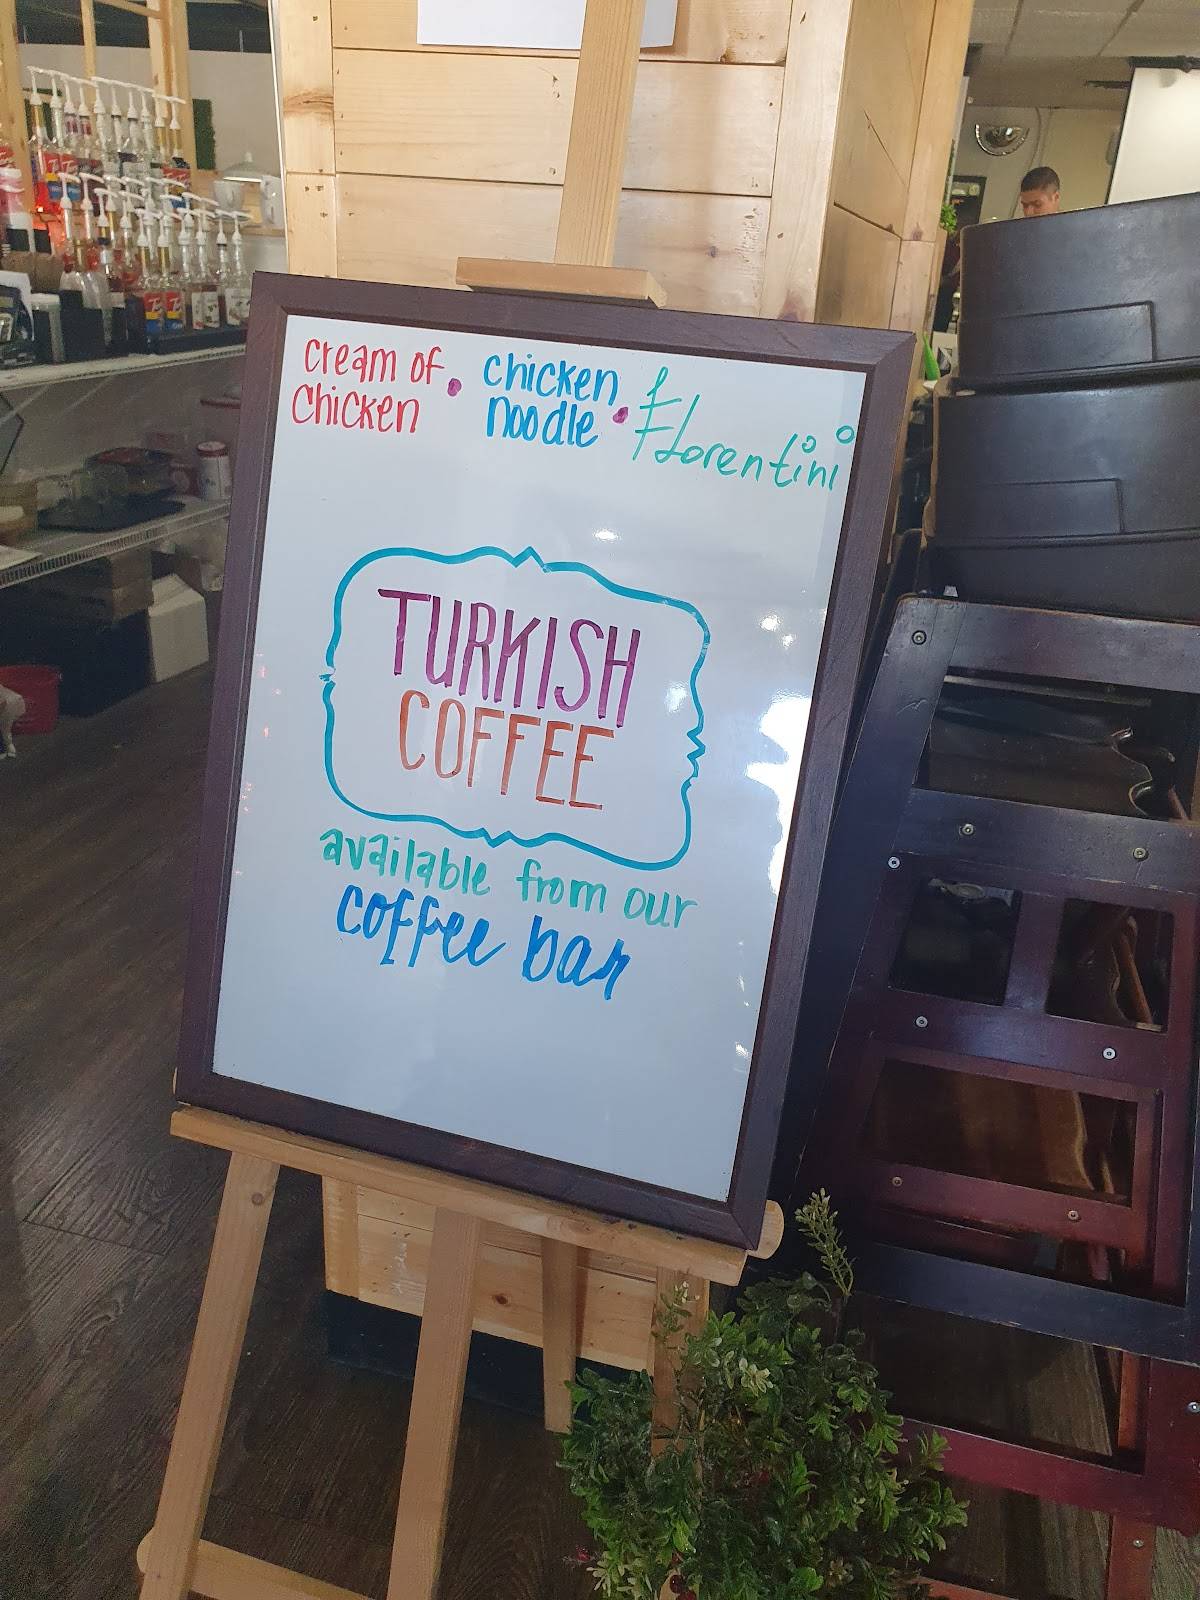 cream of
chicken
chicken
noodle
Florentini
TURKISH
COFFEE
available from our
coffee bar